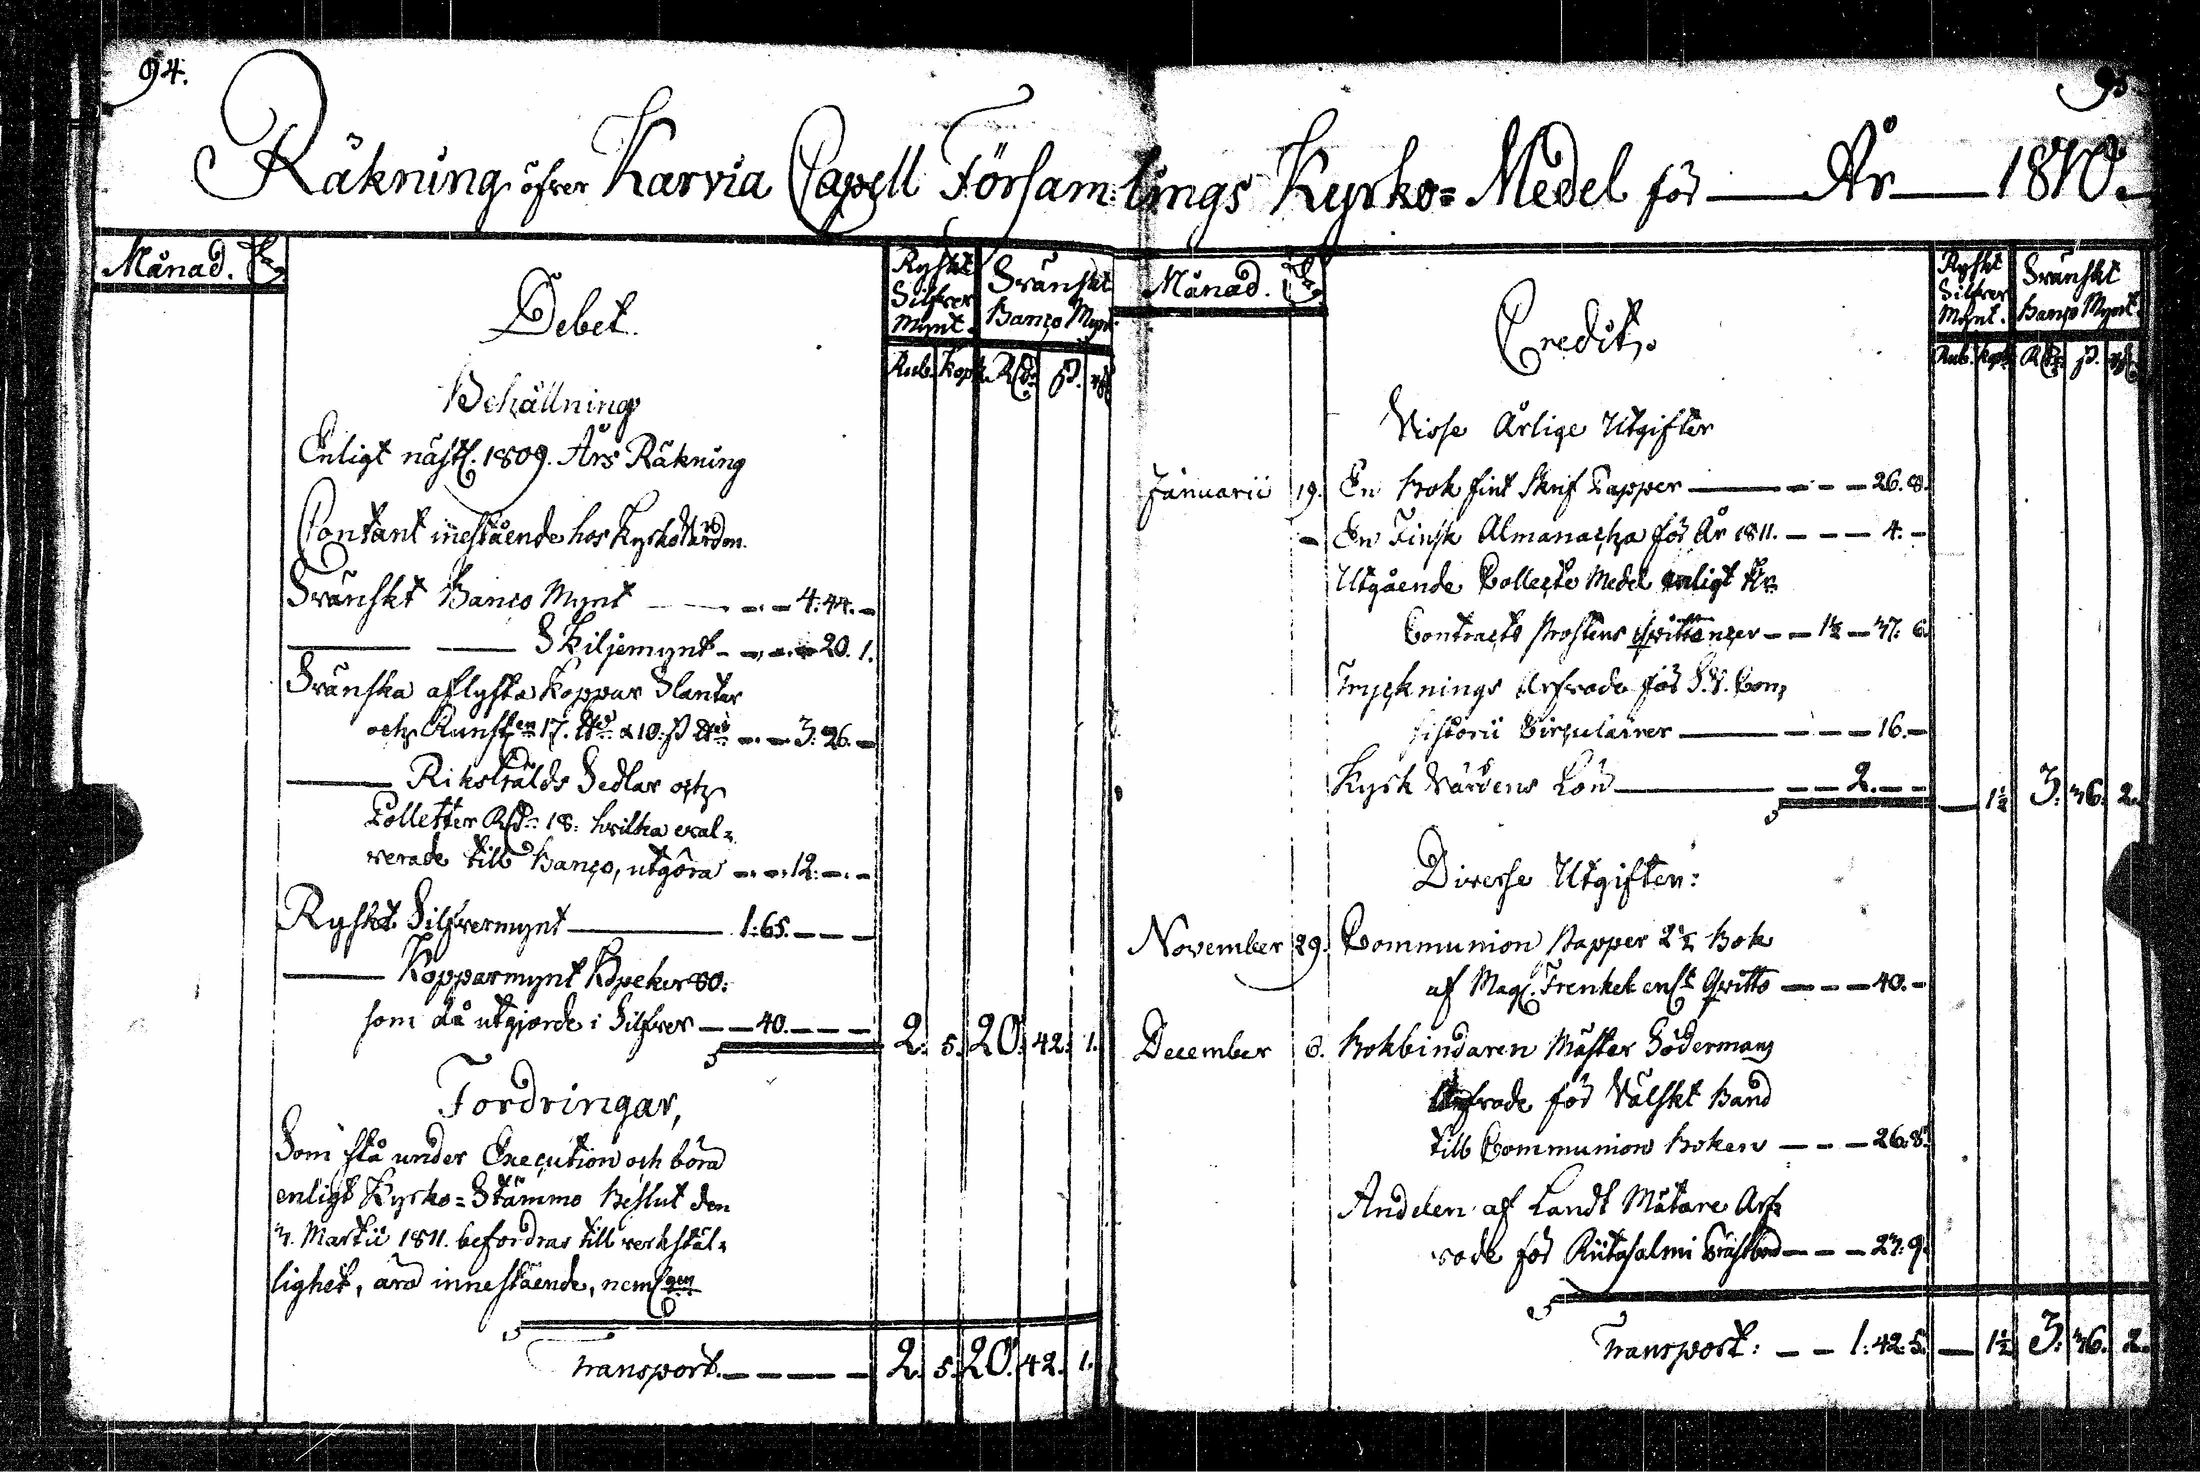 94.
95
Räkning öfver Karvia Capell Församlings Kyrko=Medel för — År — 1810.
Månad. Da.
Debet.
Ryskt Silfver Mynt.
Svänskt Banco Mynt.
Rub. Kop. Rd. ß. rst.
Behållning
Enligt nästl. 1809. Års Räkning
Contant inestående hos Kyrkovärden.
Svänskt Banco Mynt — — — 4. 44. —
— — Skiljemynt — — — 20. 1.
Svänska aflysta Koppar Slantar
och Runst. 17. st. a 10. ß st. — — 3: 26. —
— Riksgälds Sedlar och
Polletter Rd. 18: hvilka eval=
verade till Banco, utgöra — — 12: — —
Ryskt Silfvermynt — 1: 65. — — —
— Kopparmynt Kopeker 80:
som då utgjorde i Silfver — — 40. — — — 2. 5. 20. 42. 1.
Fordringar,
Som stå under Execution och böra
enligt Kyrko=Stämmo Beslut den
3. Martii 1811. befordras till verkstäl=
lighet, äro innestående, neml.
Transport. — — — — 2. 5. 20. 42. 1.
Månad. Da.
Credit.
Ryskt Silfver Mynt.
Svänskt Banco Mynt.
Rub. Kop. Rd. ß. rst.
Visse Årlige Utgifter
Januarii 19. En Bok fint Skrif Papper — — — 26. 8.
— En Finsk Almanacha för År 1811. — — — 4. —
Utgående Collecte Medel enligt Hr.
Contracts Prostens Qvittencer — — 1½ — 37: 6.
Trycknings Arfvode för S. V. Con=
sistorii Circulairer — — — 16. —
Kyrk Värdens Lön — — — 2. — — — 1½ 3: 36. 2.
Diverse Utgifter:
November 29. Communion Papper 2½ Bok
af Mag. Frenkel enl. Qvitto — — — 40. —
December 6. Bokbindaren Mäster Söderman
Arfvode för Välskt Band
till Communion Boken — — — 26. 8.
Andelen af Landt Mätare Arf=
vode för Riitasalmi Prästbord — — — 23: 9.
Transport: — — 1: 42. 5. — 1½ 3: 36. 2.